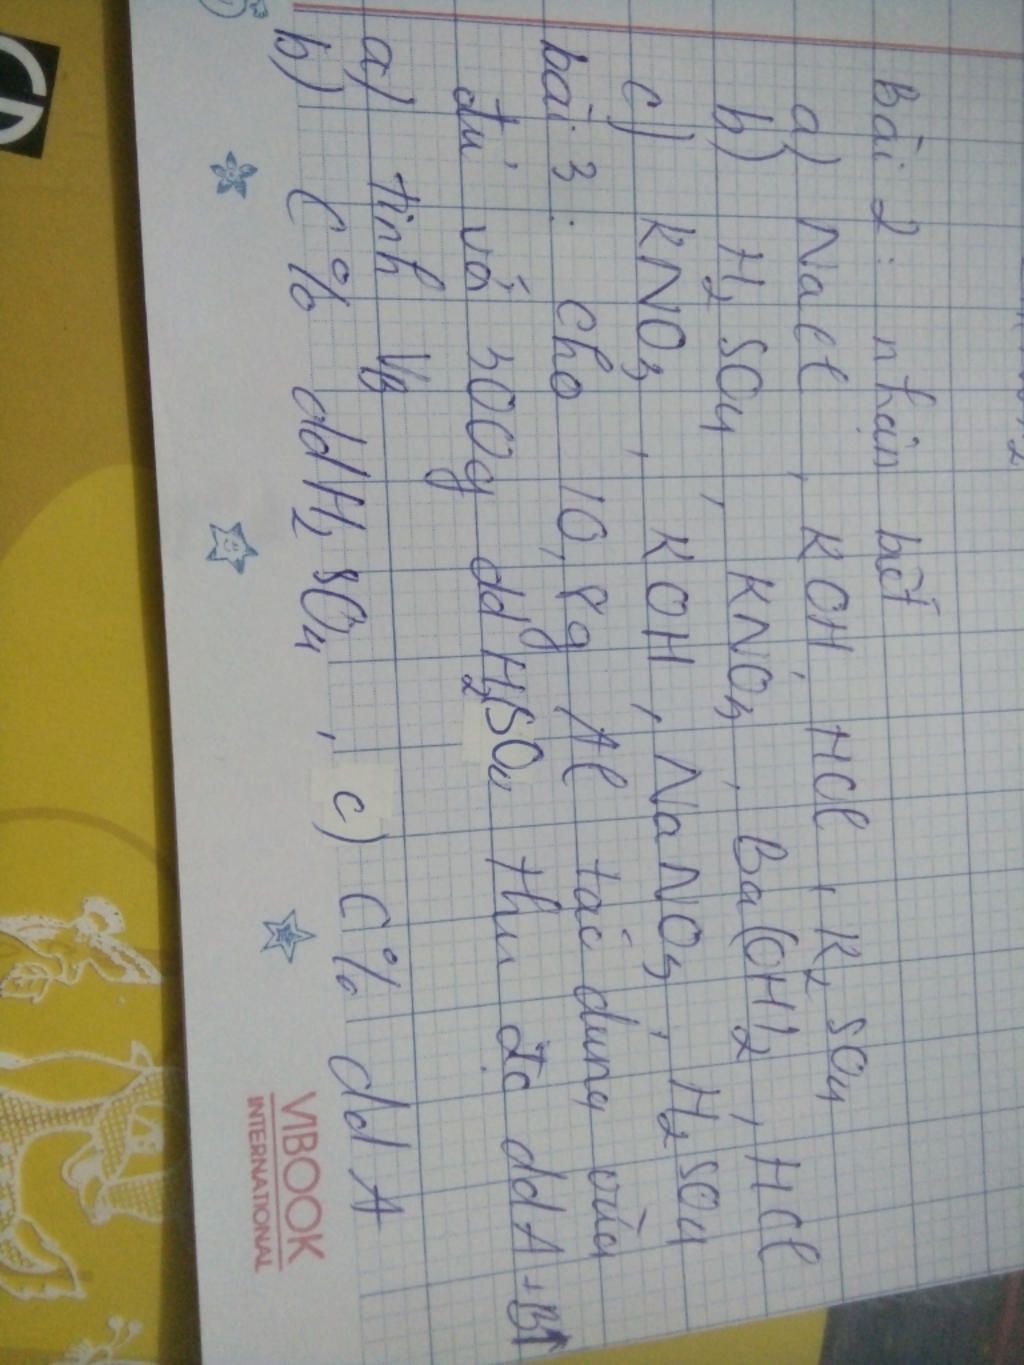 Bài 2: nhận biết
a) NaCl, KOH, HCl, K2SO4
b) H2SO4, KNO3, Ba(OH)2, HCl
c) KNO3, KOH, NaNO3, H2SO4
bài 3: cho 10,8g Al tác dụng vừa
đủ với 300g dd H2SO4 thu đc ddA + B↑
a) tính VB
b) C% ddH2SO4, c) C% dd A
VIBOOK
INTERNATIONAL